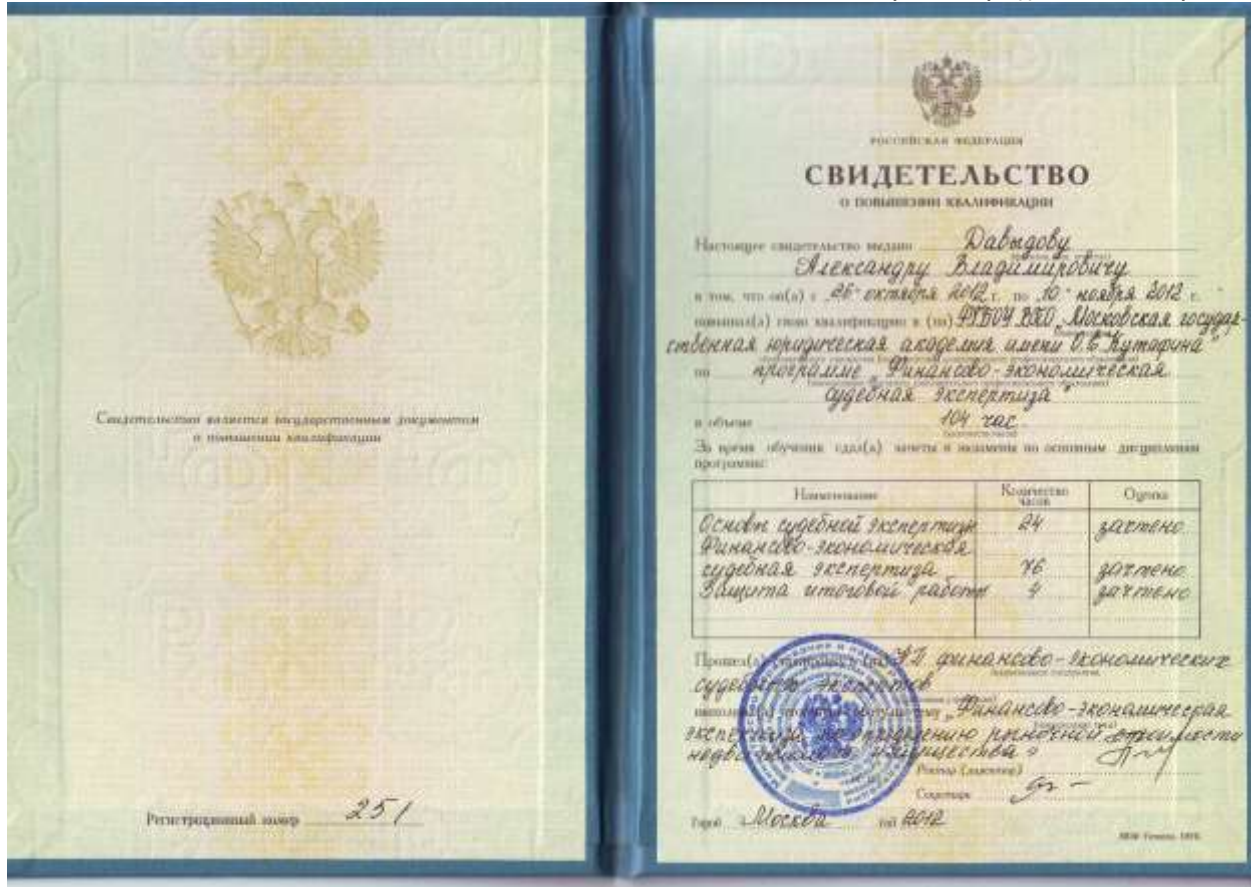 Свидетельство является государственным документом
о повышении квалификации
Регистрационный номер 251
РОССИЙСКАЯ ФЕДЕРАЦИЯ
СВИДЕТЕЛЬСТВО
О ПОВЫШЕНИИ КВАЛИФИКАЦИИ
Настоящее свидетельство выдано Давыдову
Александру Владимировичу
в том, что он(а) с „26" октября 2012 г. по „10" ноября 2012 г.
повышал(а) свою квалификацию в (на) ФГБОУ ВПО „Московская государ-
ственная юридическая академия имени О.Е. Кутафина"
по программе „Финансово-экономическая
судебная экспертиза"
в объеме 104 час.
За время обучения сдал(а) зачеты и экзамены по основным дисциплинам
программы:
Наименование Количество часов Оценка
Основы судебной экспертизы 24 зачтено
Финансово-экономическая
судебная экспертиза 76 зачтено
Защита итоговой работы 4 зачтено
Прошел(а) стажировку в (на) НП финансово-экономических
судебных экспертов
выполнил(а) итоговую работу на тему „Финансово-экономическая
экспертиза по определению рыночной стоимости
недвижимого имущества"
Ректор (директор)
Секретарь
Город Москва год 2012